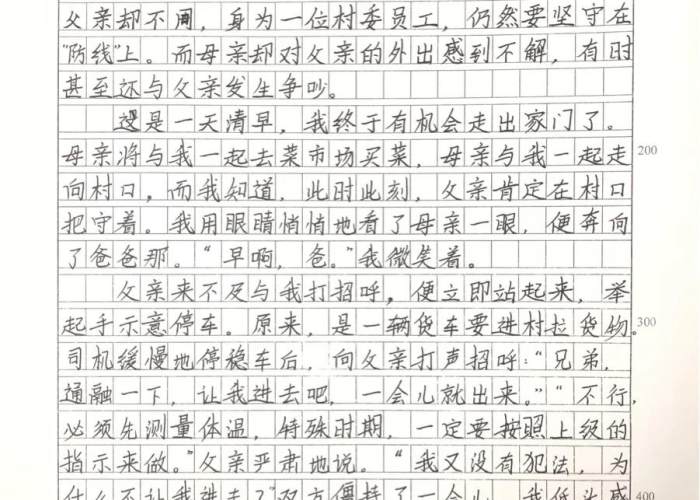 父亲却不同，身为一位村委员工，仍然要坚守在
"防线"上。而母亲却对父亲的外出感到不解，有时
甚至还与父亲发生争吵。
这是一天清早，我终于有机会走出家门了。
母亲将与我一起去菜市场买菜，母亲与我一起走
200
向村口，而我知道，此时此刻，父亲肯定在村口
把守着。我用眼睛悄悄地看了母亲一眼，便奔向
了爸爸那。"早啊，爸。"我微笑着。
父亲来不及与我打招呼，便立即站起来，举
起手示意停车。原来，是一辆货车要进村拉货物。
300
司机缓慢地停稳车后，向父亲打声招呼："兄弟，
通融一下，让我进去吧，一会儿就出来。""不行，
必须先测量体温，特殊时期，一定要按照上级的
指示来做。"父亲严肃地说。"我又没有犯法，为
什么不让我进去？"双方僵持了一会儿，我低头感
400